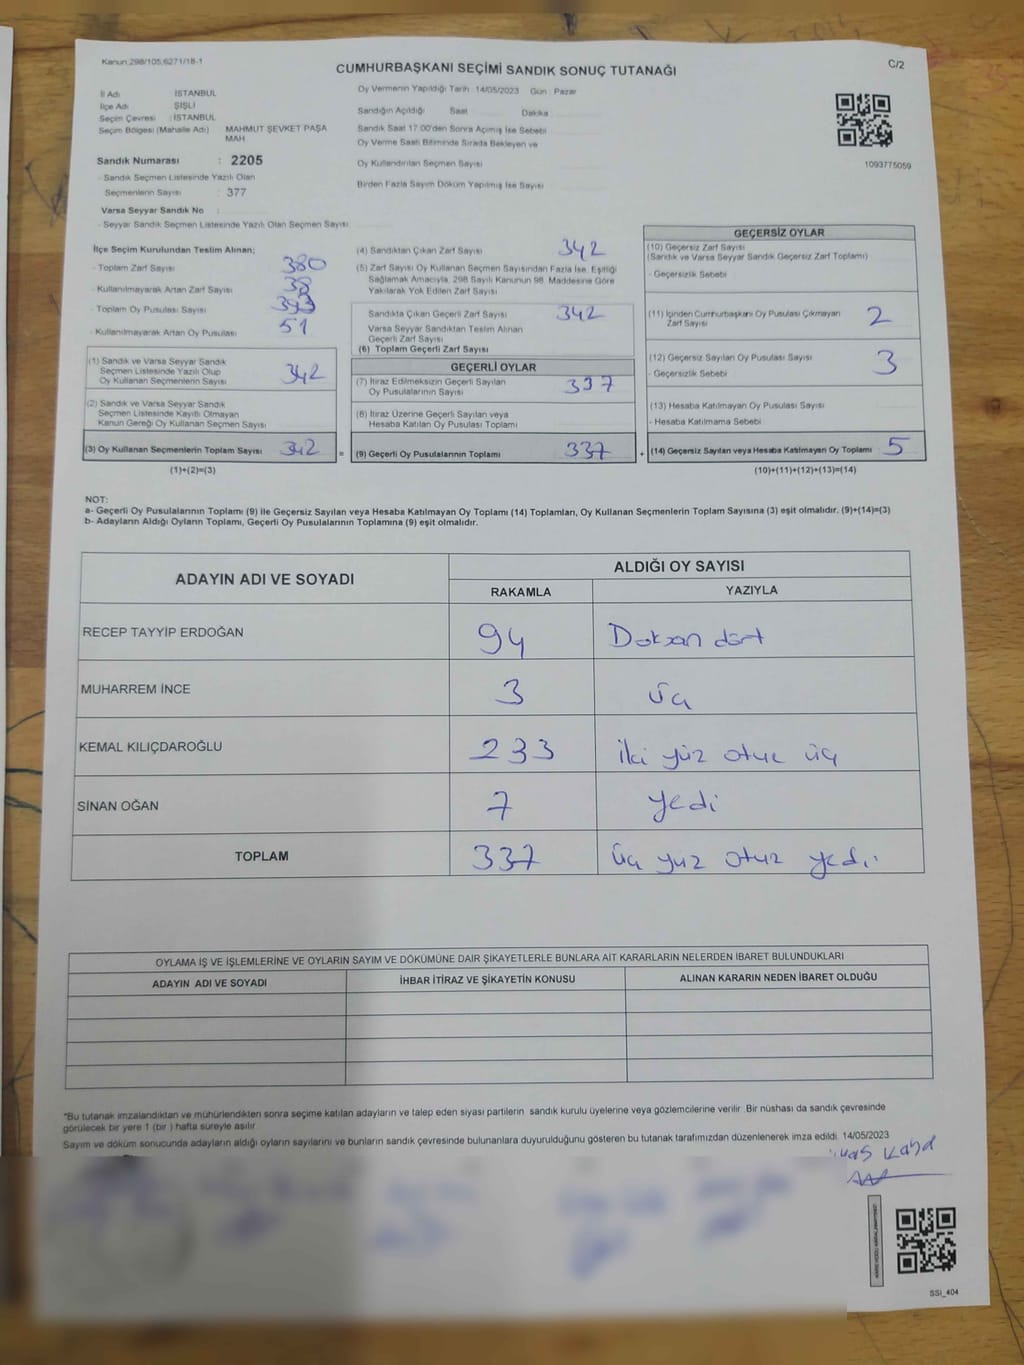 Kanun 298/105,6271/18-1
CUMHURBAŞKANI SEÇİMİ SANDIK SONUÇ TUTANAĞI
C/2
İl Adı İSTANBUL
İlçe Adı ŞİŞLİ
Seçim Çevresi : İSTANBUL
Seçim Bölgesi (Mahalle Adı) MAHMUT ŞEVKET PAŞA
MAH
Sandık Numarası : 2205
- Sandık Seçmen Listesinde Yazılı Olan
Seçmenlerin Sayısı : 377
Varsa Seyyar Sandık No :
- Seyyar Sandık Seçmen Listesinde Yazılı Olan Seçmen Sayısı
Oy Vermenin Yapıldığı Tarih 14/05/2023 Gün : Pazar
Sandığın Açıldığı Saat Dakika
Sandık Saat 17:00'den Sonra Açımış İse Sebebi
Oy Verme Saati Bitiminde Sırada Bekleyen ve
Oy Kullandırılan Seçmen Sayısı
Birden Fazla Sayım Döküm Yapılmış İse Sayısı
1093775059
İlçe Seçim Kurulundan Teslim Alınan;
- Toplam Zarf Sayısı 380
- Kullanılmayarak Artan Zarf Sayısı 38
- Toplam Oy Pusulası Sayısı 393
- Kullanılmayarak Artan Oy Pusulası 51
(1) Sandık ve Varsa Seyyar Sandık
Seçmen Listesinde Yazılı Olup
Oy Kullanan Seçmenlerin Sayısı 342
(2) Sandık ve Varsa Seyyar Sandık
Seçmen Listesinde Kayıtlı Olmayan
Kanun Gereği Oy Kullanan Seçmen Sayısı
(3) Oy Kullanan Seçmenlerin Toplam Sayısı 342 =
(1)+(2)=(3)
(4) Sandıktan Çıkan Zarf Sayısı 342
(5) Zarf Sayısı Oy Kullanan Seçmen Sayısından Fazla İse, Eşitliği
Sağlamak Amacıyla, 298 Sayılı Kanunun 98. Maddesine Göre
Yakılarak Yok Edilen Zarf Sayısı
Sandıkta Çıkan Geçerli Zarf Sayısı 342
Varsa Seyyar Sandıktan Teslim Alınan
Geçerli Zarf Sayısı
(6) Toplam Geçerli Zarf Sayısı
GEÇERLİ OYLAR
(7) İtiraz Edilmeksizin Geçerli Sayılan
Oy Pusulalarının Sayısı 337
(8) İtiraz Üzerine Geçerli Sayılan veya
Hesaba Katılan Oy Pusulası Toplamı
(9) Geçerli Oy Pusulalarının Toplamı 337 +
GEÇERSİZ OYLAR
(10) Geçersiz Zarf Sayısı
(Sandık ve Varsa Seyyar Sandık Geçersiz Zarf Toplamı)
- Geçersizlik Sebebi
(11) İçinden Cumhurbaşkanı Oy Pusulası Çıkmayan
Zarf Sayısı 2
(12) Geçersiz Sayılan Oy Pusulası Sayısı 3
- Geçersizlik Sebebi
(13) Hesaba Katılmayan Oy Pusulası Sayısı
- Hesaba Katılmama Sebebi
(14) Geçersiz Sayılan veya Hesaba Katılmayan Oy Toplamı 5
(10)+(11)+(12)+(13)=(14)
NOT:
a- Geçerli Oy Pusulalarının Toplamı (9) ile Geçersiz Sayılan veya Hesaba Katılmayan Oy Toplamı (14) Toplamları, Oy Kullanan Seçmenlerin Toplam Sayısına (3) eşit olmalıdır. (9)+(14)=(3)
b- Adayların Aldığı Oyların Toplamı, Geçerli Oy Pusulalarının Toplamına (9) eşit olmalıdır.
ADAYIN ADI VE SOYADI ALDIĞI OY SAYISI
RAKAMLA YAZIYLA
RECEP TAYYİP ERDOĞAN 94 Doksan dört
MUHARREM İNCE 3 üç
KEMAL KILIÇDAROĞLU 233 iki yüz otuz üç
SİNAN OĞAN 7 yedi
TOPLAM 337 üç yüz otuz yedi
OYLAMA İŞ VE İŞLEMLERİNE VE OYLARIN SAYIM VE DÖKÜMÜNE DAİR ŞİKAYETLERLE BUNLARA AİT KARARLARIN NELERDEN İBARET BULUNDUKLARI
ADAYIN ADI VE SOYADI İHBAR İTİRAZ VE ŞİKAYETİN KONUSU ALINAN KARARIN NEDEN İBARET OLDUĞU
*Bu tutanak imzalandıktan ve mühürlendikten sonra seçime katılan adayların ve talep eden siyasi partilerin sandık kurulu üyelerine veya gözlemcilerine verilir. Bir nüshası da sandık çevresinde
görülecek bir yere 1 (bir ) hafta süreyle asılır
Sayım ve döküm sonucunda adayların aldığı oyların sayılarını ve bunların sandık çevresinde bulunanlara duyurulduğunu gösteren bu tutanak tarafımızdan düzenlenerek imza edildi. 14/05/2023
SSI_404